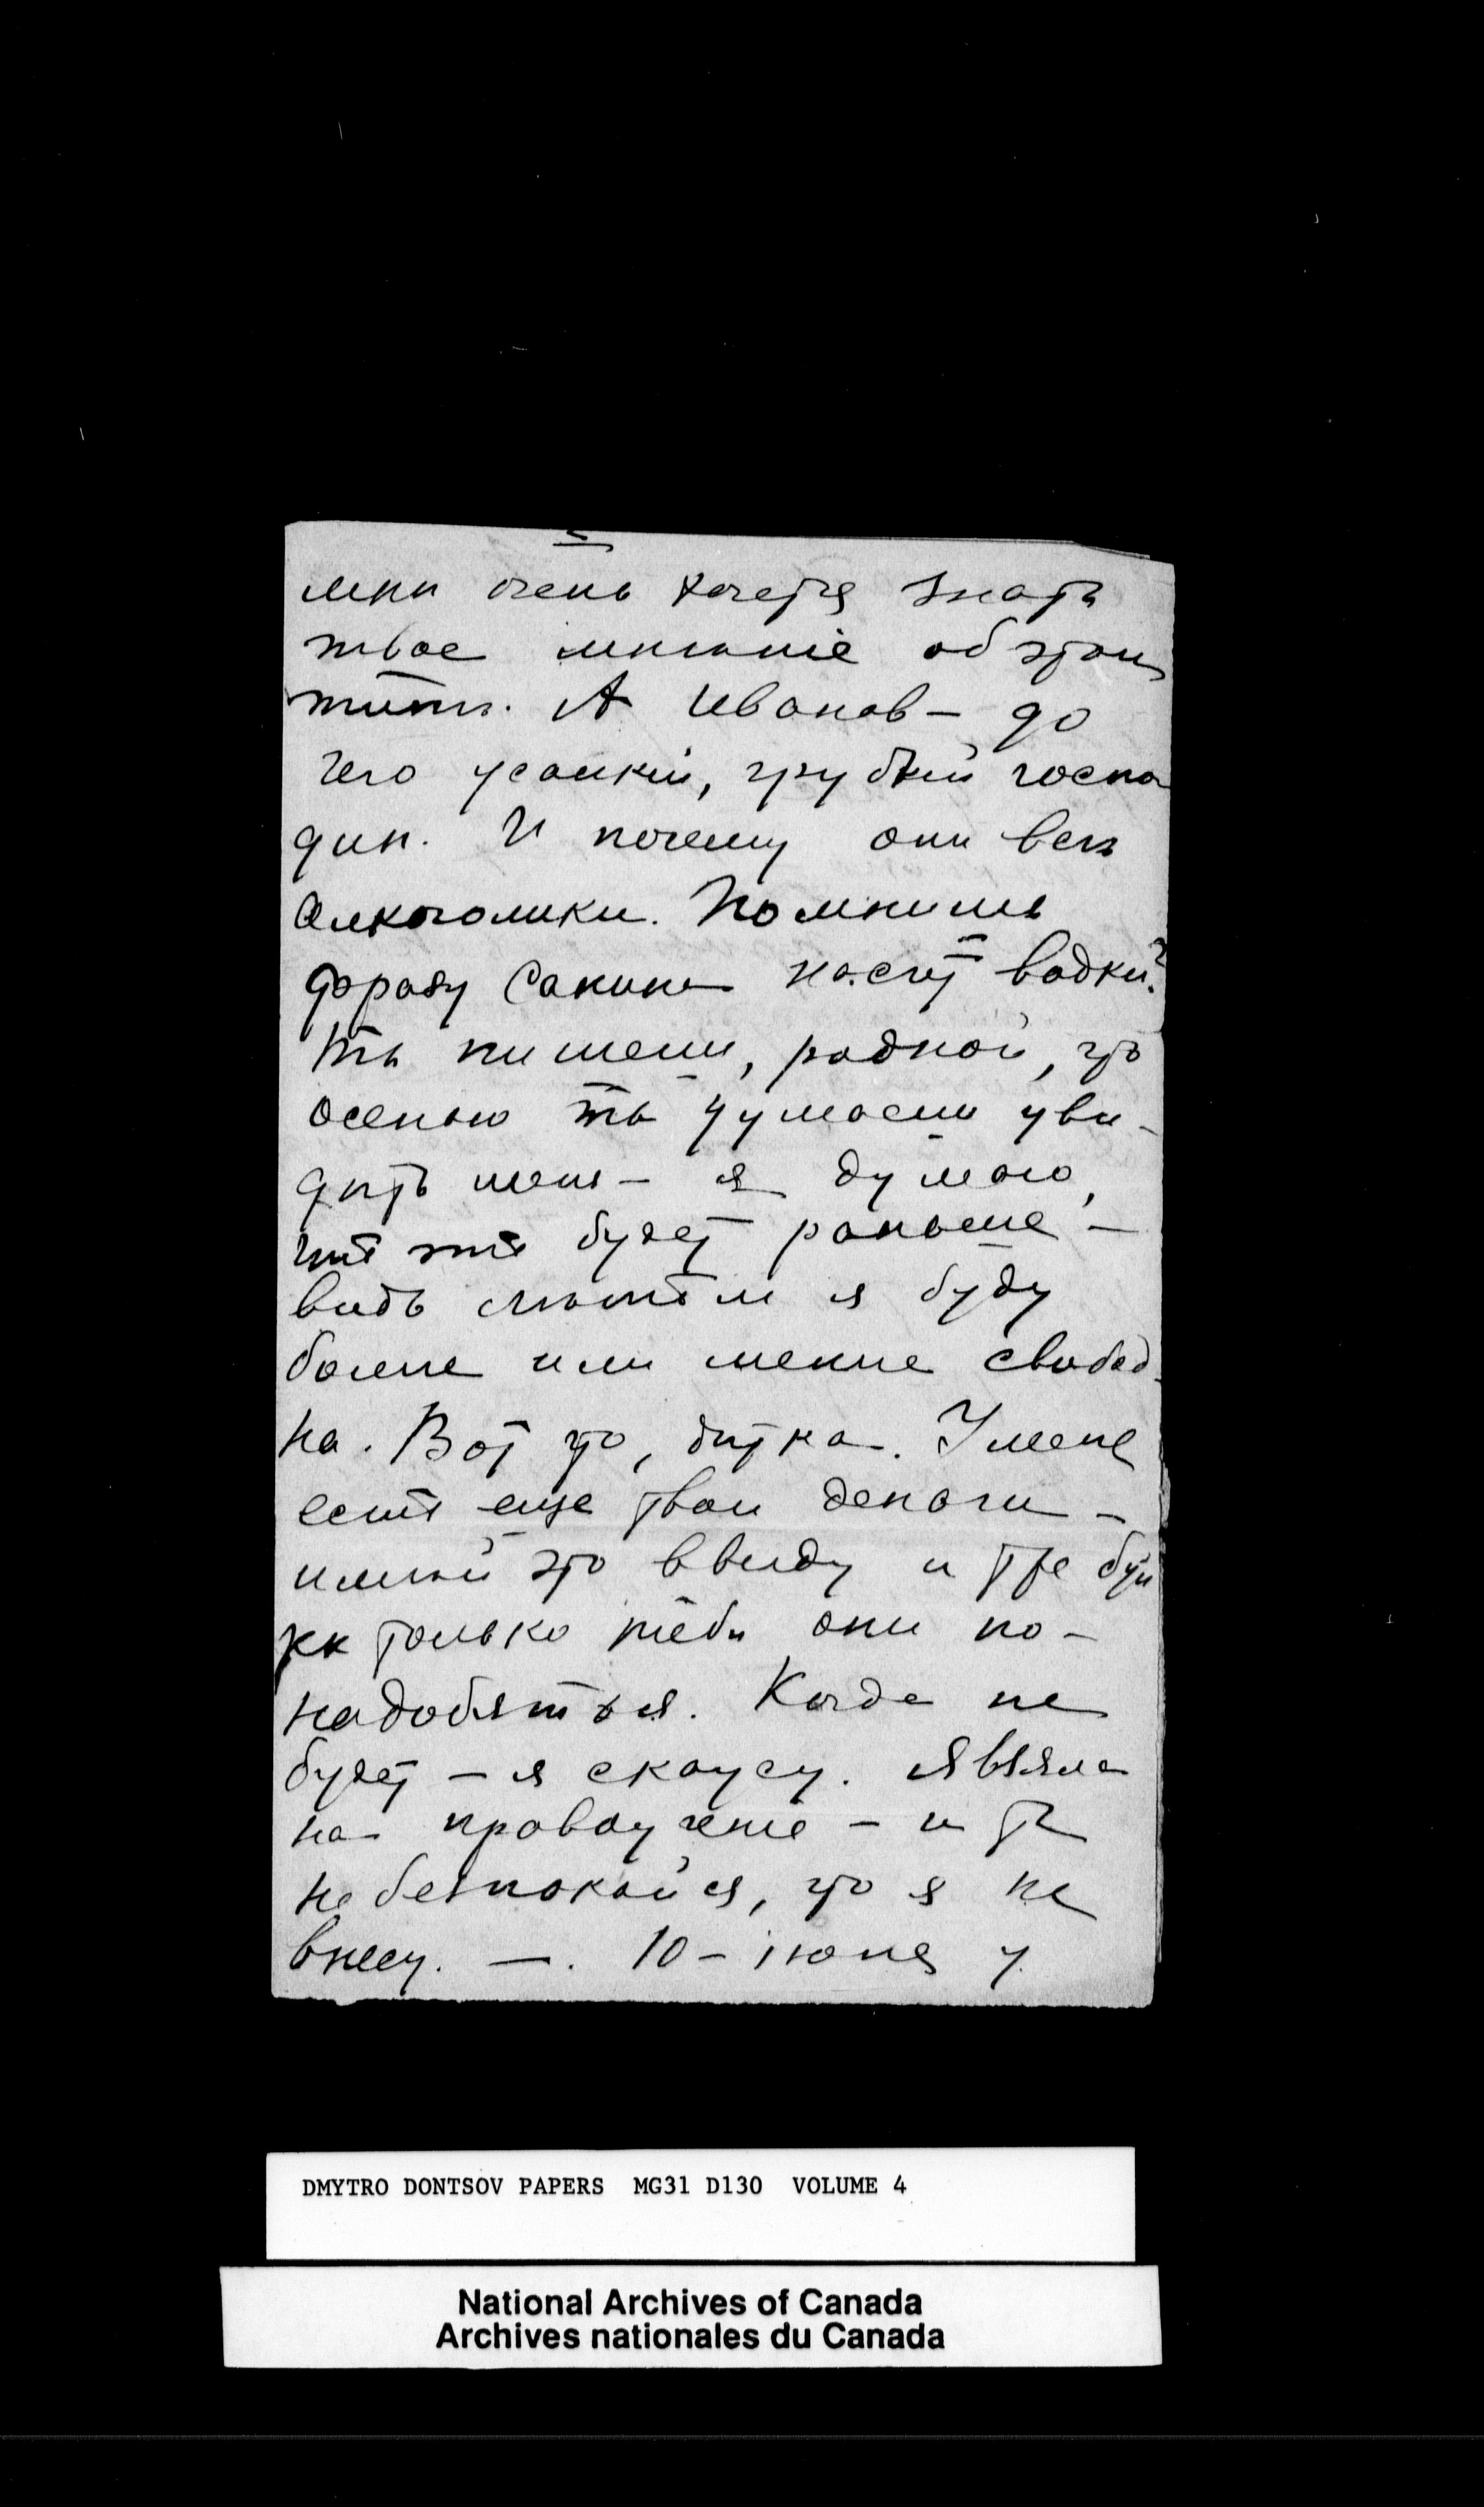 мнѣ очень хочется знать
твое мнѣніе об этом
типѣ. А Иванов — до
чего узкий, грубый госпо
дин. И почему они всѣ
алкоголики. Помнишь
фразу Санина насчет водки?
Ты пишеш, родной, что
осенью ты думаеш уви-
дѣть меня — я думаю,
что это будет раньше —
вѣдь лѣтом я буду
болѣе или менѣе свобод-
на. Вот что, дѣтка. У меня
есть еще твои деньги —
имѣй это ввиду и требуй
как только тебѣ они по-
надобяться. Когда не
будет — я скажу. Я взяла
на правоучение — и ты
не безпокойся, что я не
внесу. —. 10 - іюня у
DMYTRO DONTSOV PAPERS MG31 D130 VOLUME 4
National Archives of Canada
Archives nationales du Canada